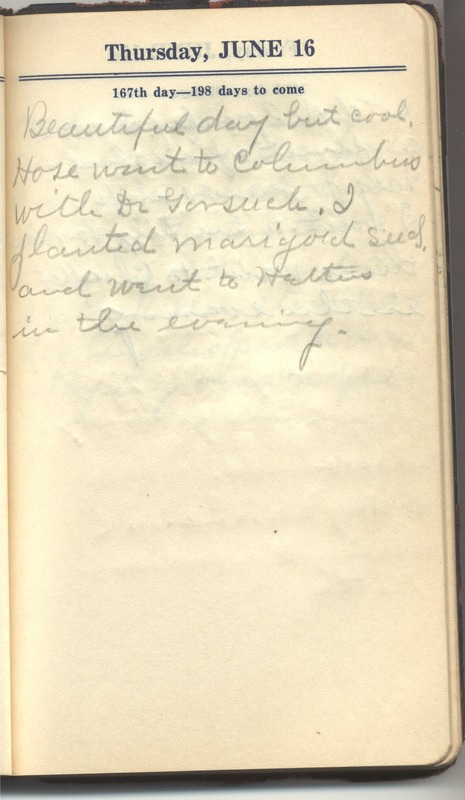 Thursday, JUNE 16
167th day—198 days to come
Beautiful day but cool.
Hose went to Columbus
with Dr Gorsuch. I
planted marigold seed,
and went to Hatties
in the evening.